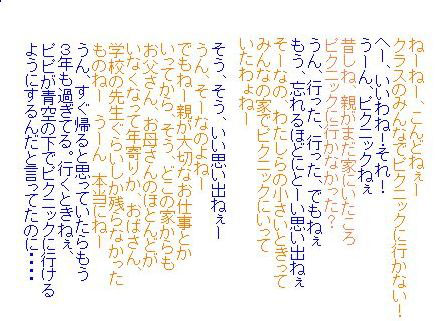 ねーねー、こんどねぇー
クラスのみんなでピクニックに行かない!
へー、いいわね!それ!
うーん、ピクニックねぇ
昔しね、親がまだ家にいたころ
ピクニックに行かなかった?
うん、行った、行った、でもねぇ
もう、忘れるほどにとーい思い出ねぇ
そーなの、わたしらの小さいときって
みんなの家でピクニックにいって
いたわよねー
そう、そう、いい思い出ねぇー
うん、そーなのよねー
でもね、親が大切なお仕事とか
いってから、そう、どこの家からも
お父さん、お母さんのほとんどが
いなくなって年寄りか、おばさん、
学校の先生ぐらいしか残らなかった
ものねー、うーん、本当にねー
うん、すぐ帰ると思っていたらもう
3年も過ぎてる。行くときねぇ、
ビビが青空の下でピクニックに行ける
ようにするんだと言ってたのに・・・・